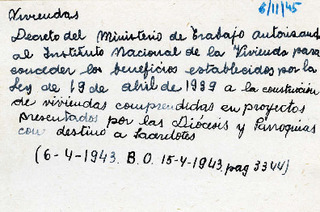 Viviendas
6/11/45
Decreto del Ministerio de Trabajo autorizando
al Instituto Nacional de la Vivienda para
conceder los beneficios establecidos por la
Ley de 19 de abril de 1939 a la construcción
de viviendas comprendidas en proyectos
presentados por las Diócesis y Parroquias
con destino a Sacerdotes
(6-4-1943. B.O. 15-4-1943. pag 3344)